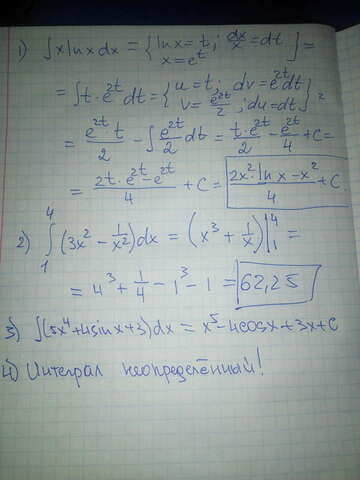 1) ∫x ln x dx = {ln x = t; dx/x = dt; x = e^t} =
= ∫t·e^(2t) dt = {u = t; dv = e^(2t) dt; v = e^(2t)/2; du = dt} =
= e^(2t)·t/2 - ∫e^(2t)/2 dt = t·e^(2t)/2 - e^(2t)/4 + C =
= (2t·e^(2t) - e^(2t))/4 + C = (2x²·ln x - x²)/4 + C
2) ∫₁⁴ (3x² - 1/x²)dx = (x³ + 1/x)|₁⁴ =
= 4³ + 1/4 - 1³ - 1 = 62,25
3) ∫(5x⁴+4sinx+3)dx = x⁵-4cosx+3x+C
4) Интеграл неопределённый!